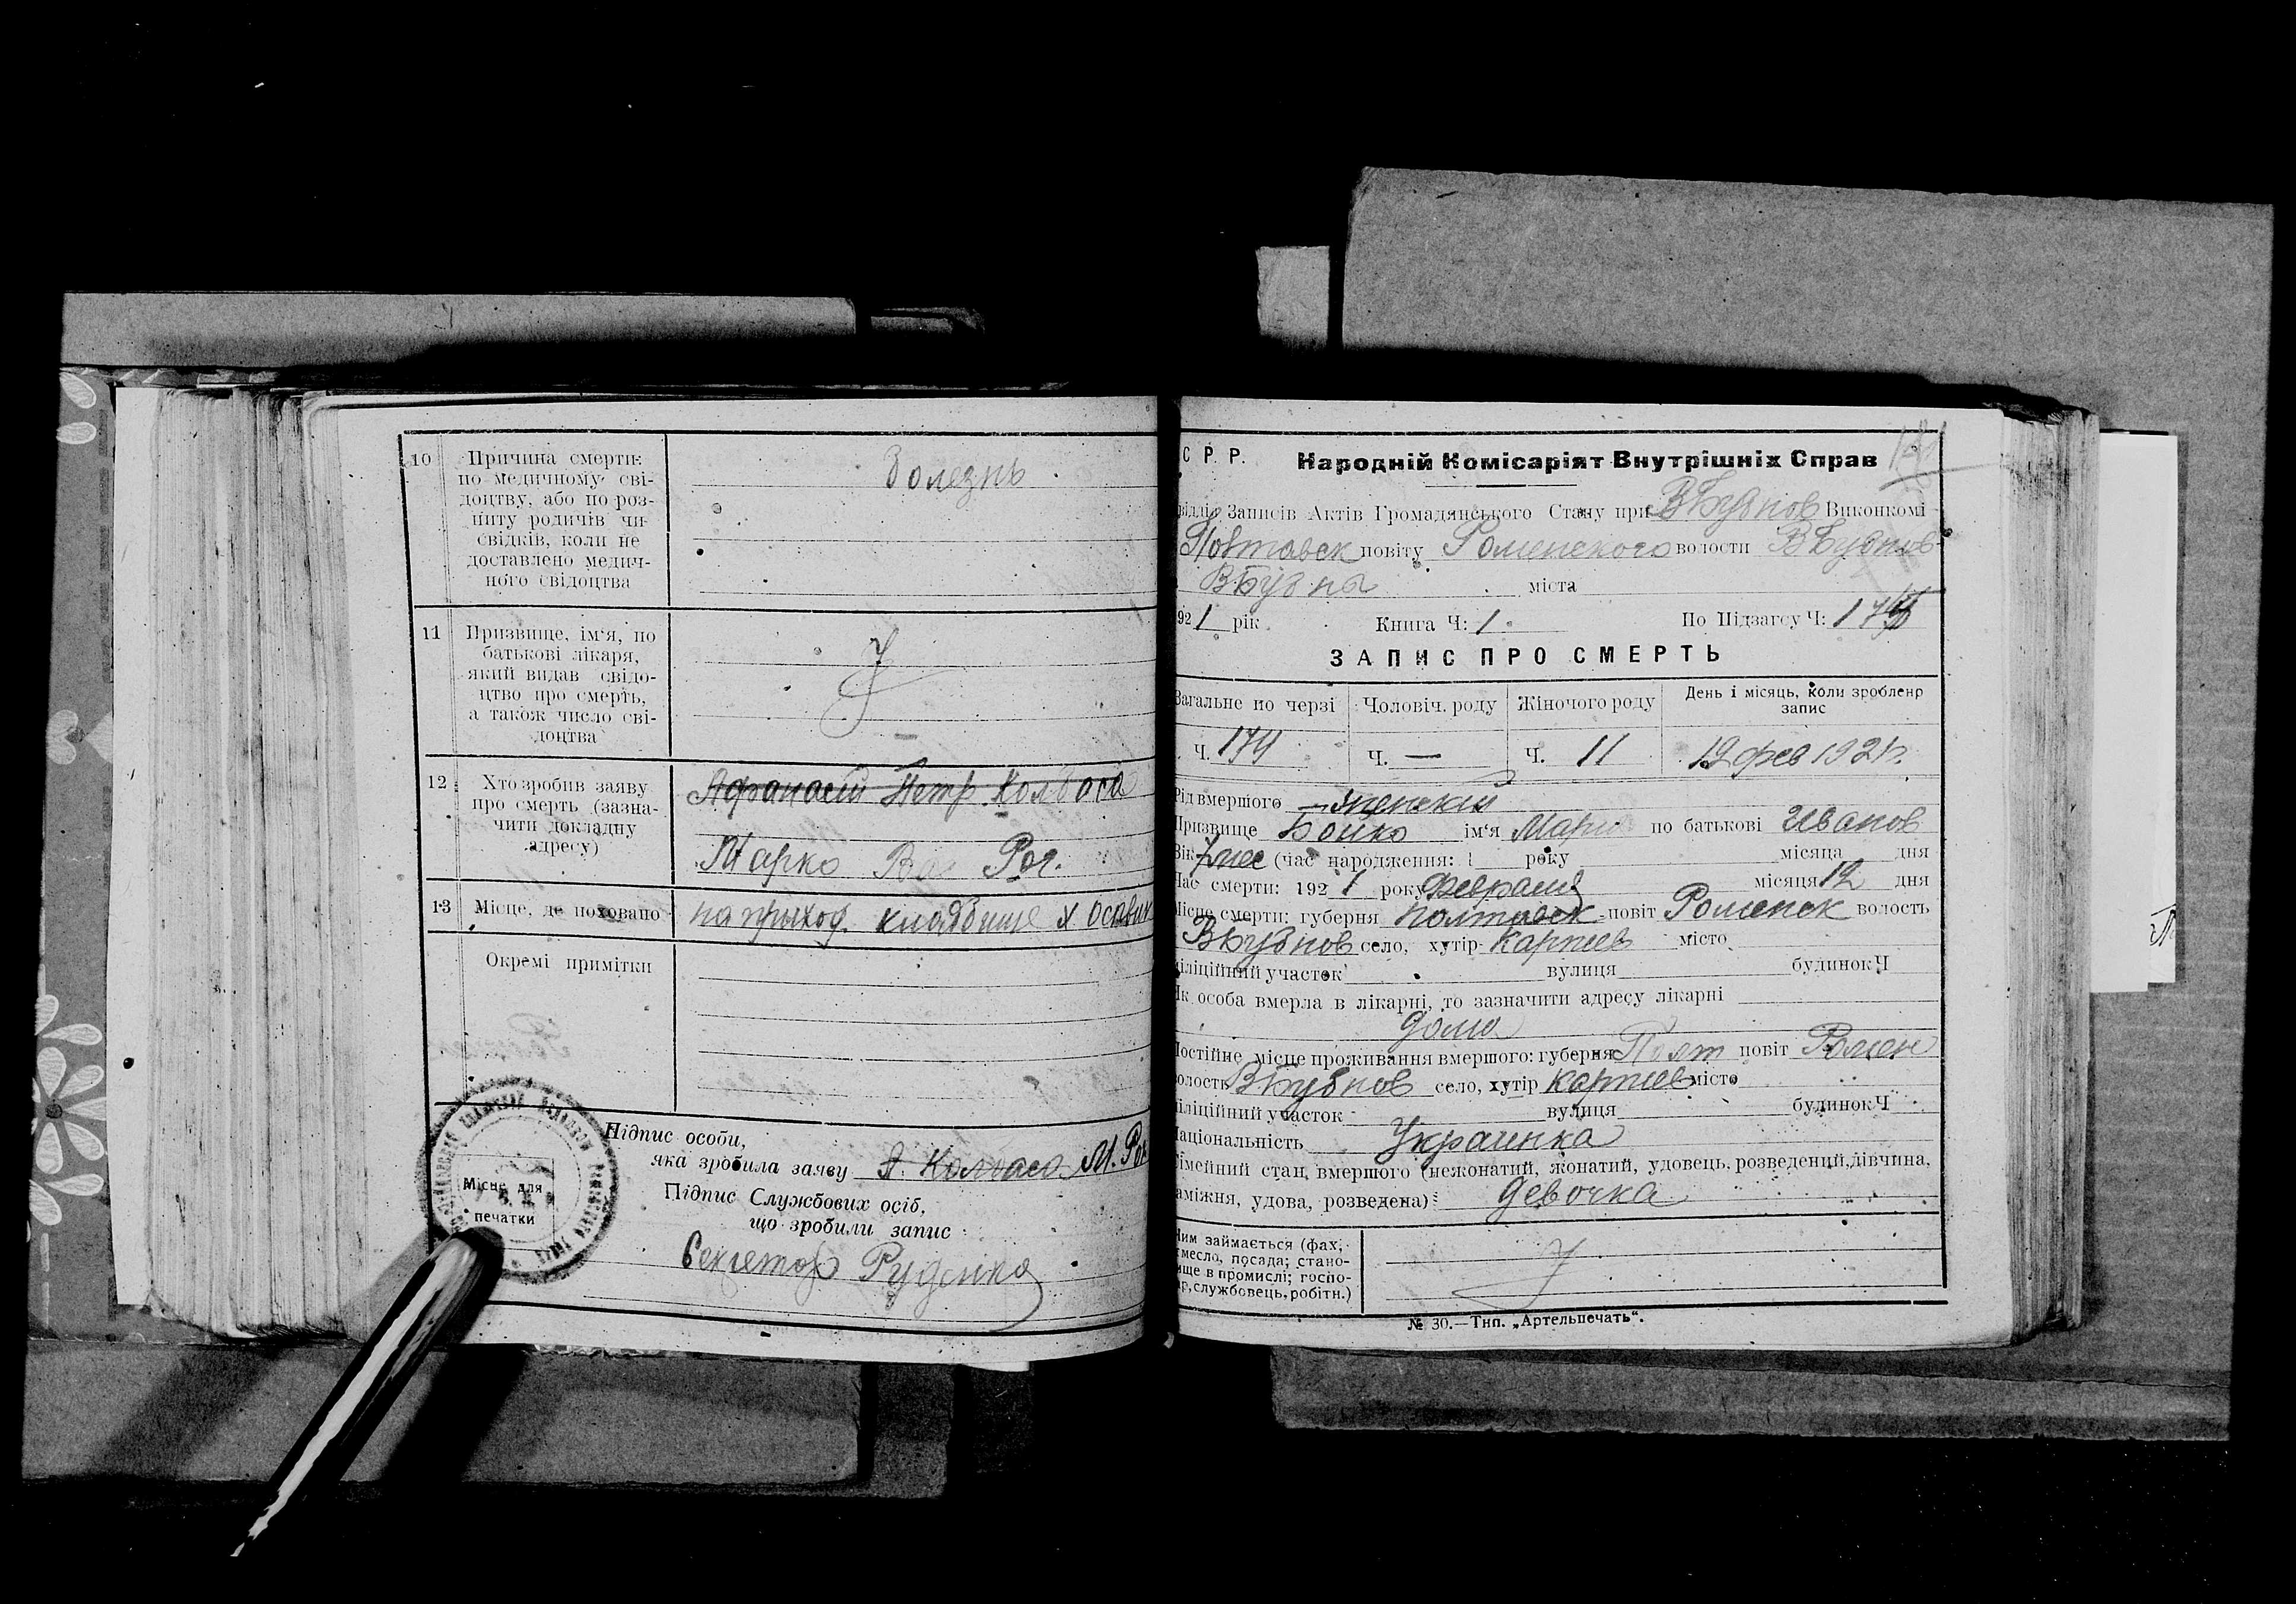 10 Причина смерти:
по медичному сві-
доцтву, або по роз-
питу родичів чи
свідків, коли не
доставлено медич-
ного свідоцтва
болезнь
11 Призвище, ім'я, по
батькові лікаря,
який видав свідо-
цтво про смерть,
а також число сві-
доцтва
12 Хто зробив заяву
про смерть (зазна-
чити докладну
адресу)
Афанасий Петр. Колбаса
Марко Вас Рог.
13 Місце, де поховано
на приход. кладбище х Осавик
Окремі примітки
Підпис особи,
яка зробила заяву А. Колбаса М. Рог
Підпис Службових осіб,
що зробили запис
Місце для
печатки
Секретар Руденко
С Р. Р. Народній Комісаріят Внутрішніх Справ
відділ Записів Актів Громадянського Стану при ВБубнов Виконкомі
Повтавск повіту Роменского волости ВБубнов
ВБубны міста
921 рік Книга Ч: 1 По Підзагсу Ч:
ЗАПИС ПРО СМЕРТЬ
Загальне по черзі Чоловіч. роду Жіночого роду День і місяць, коли зроблено
запис
Ч. 174 Ч. — Ч. 11 19 фев 1921 г.
Рід вмершого — женский
Призвище Бойко ім'я Мария по батькові Иванов
Вік 7 мес (час народження: 1 року місяца дня
Час смерти: 1921 року Февраля місяця 12 дня
Місце смерти: губерня Полтавск повіт Роменск волость
ВБубнов село, хутір Карпиев місто
міліційний участок вулиця будинок Ч
Як особа вмерла в лікарні, то зазначити адресу лікарні
дома
Постійне місце проживання вмершого: губерня Полт повіт Ромен
волость ВБубнов село, хутір Карпиев місто
міліційний участок вулиця будинок Ч
Національність Украинка
Сімейний стан вмершого (нежонатий, жонатий, удовець, розведений, дівчина,
заміжня, удова, розведена): девочка
Чим займається (фах,
ремесло, посада; стано-
вище в промислі; госпо-
дар, службовець, робітн.)
№ 30.—Тип. „Артельпечать“.